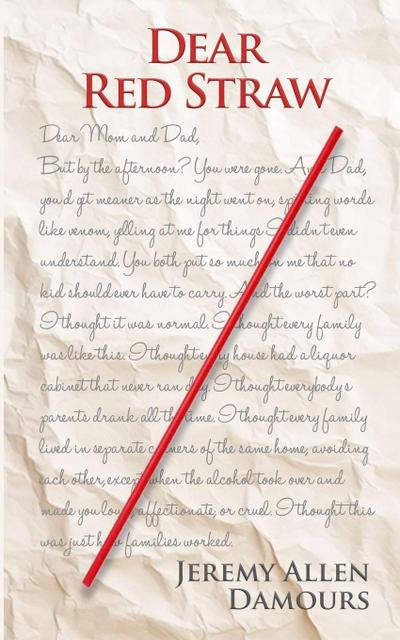 DEAR
RED STRAW
Dear Mom and Dad,
But by the afternoon? You were gone. And Dad,
you'd get meaner as the night went on, spitting words
like venom, yelling at me for things I didn't even
understand. You both put so much on me that no
kid should ever have to carry. And the worst part?
I thought it was normal. I thought every family
was like this. I thought every house had a liquor
cabinet that never ran dry. I thought everybody's
parents drank all the time. I thought every family
lived in separate corners of the same home, avoiding
each other, except when the alcohol took over and
made you loud, affectionate, or cruel. I thought this
was just how families worked.
JEREMY ALLEN
DAMOURS